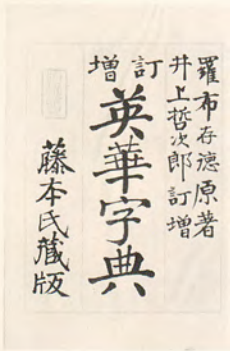 羅布存德原著
井上哲次郎訂增
訂增
英華字典
藤本氏藏版